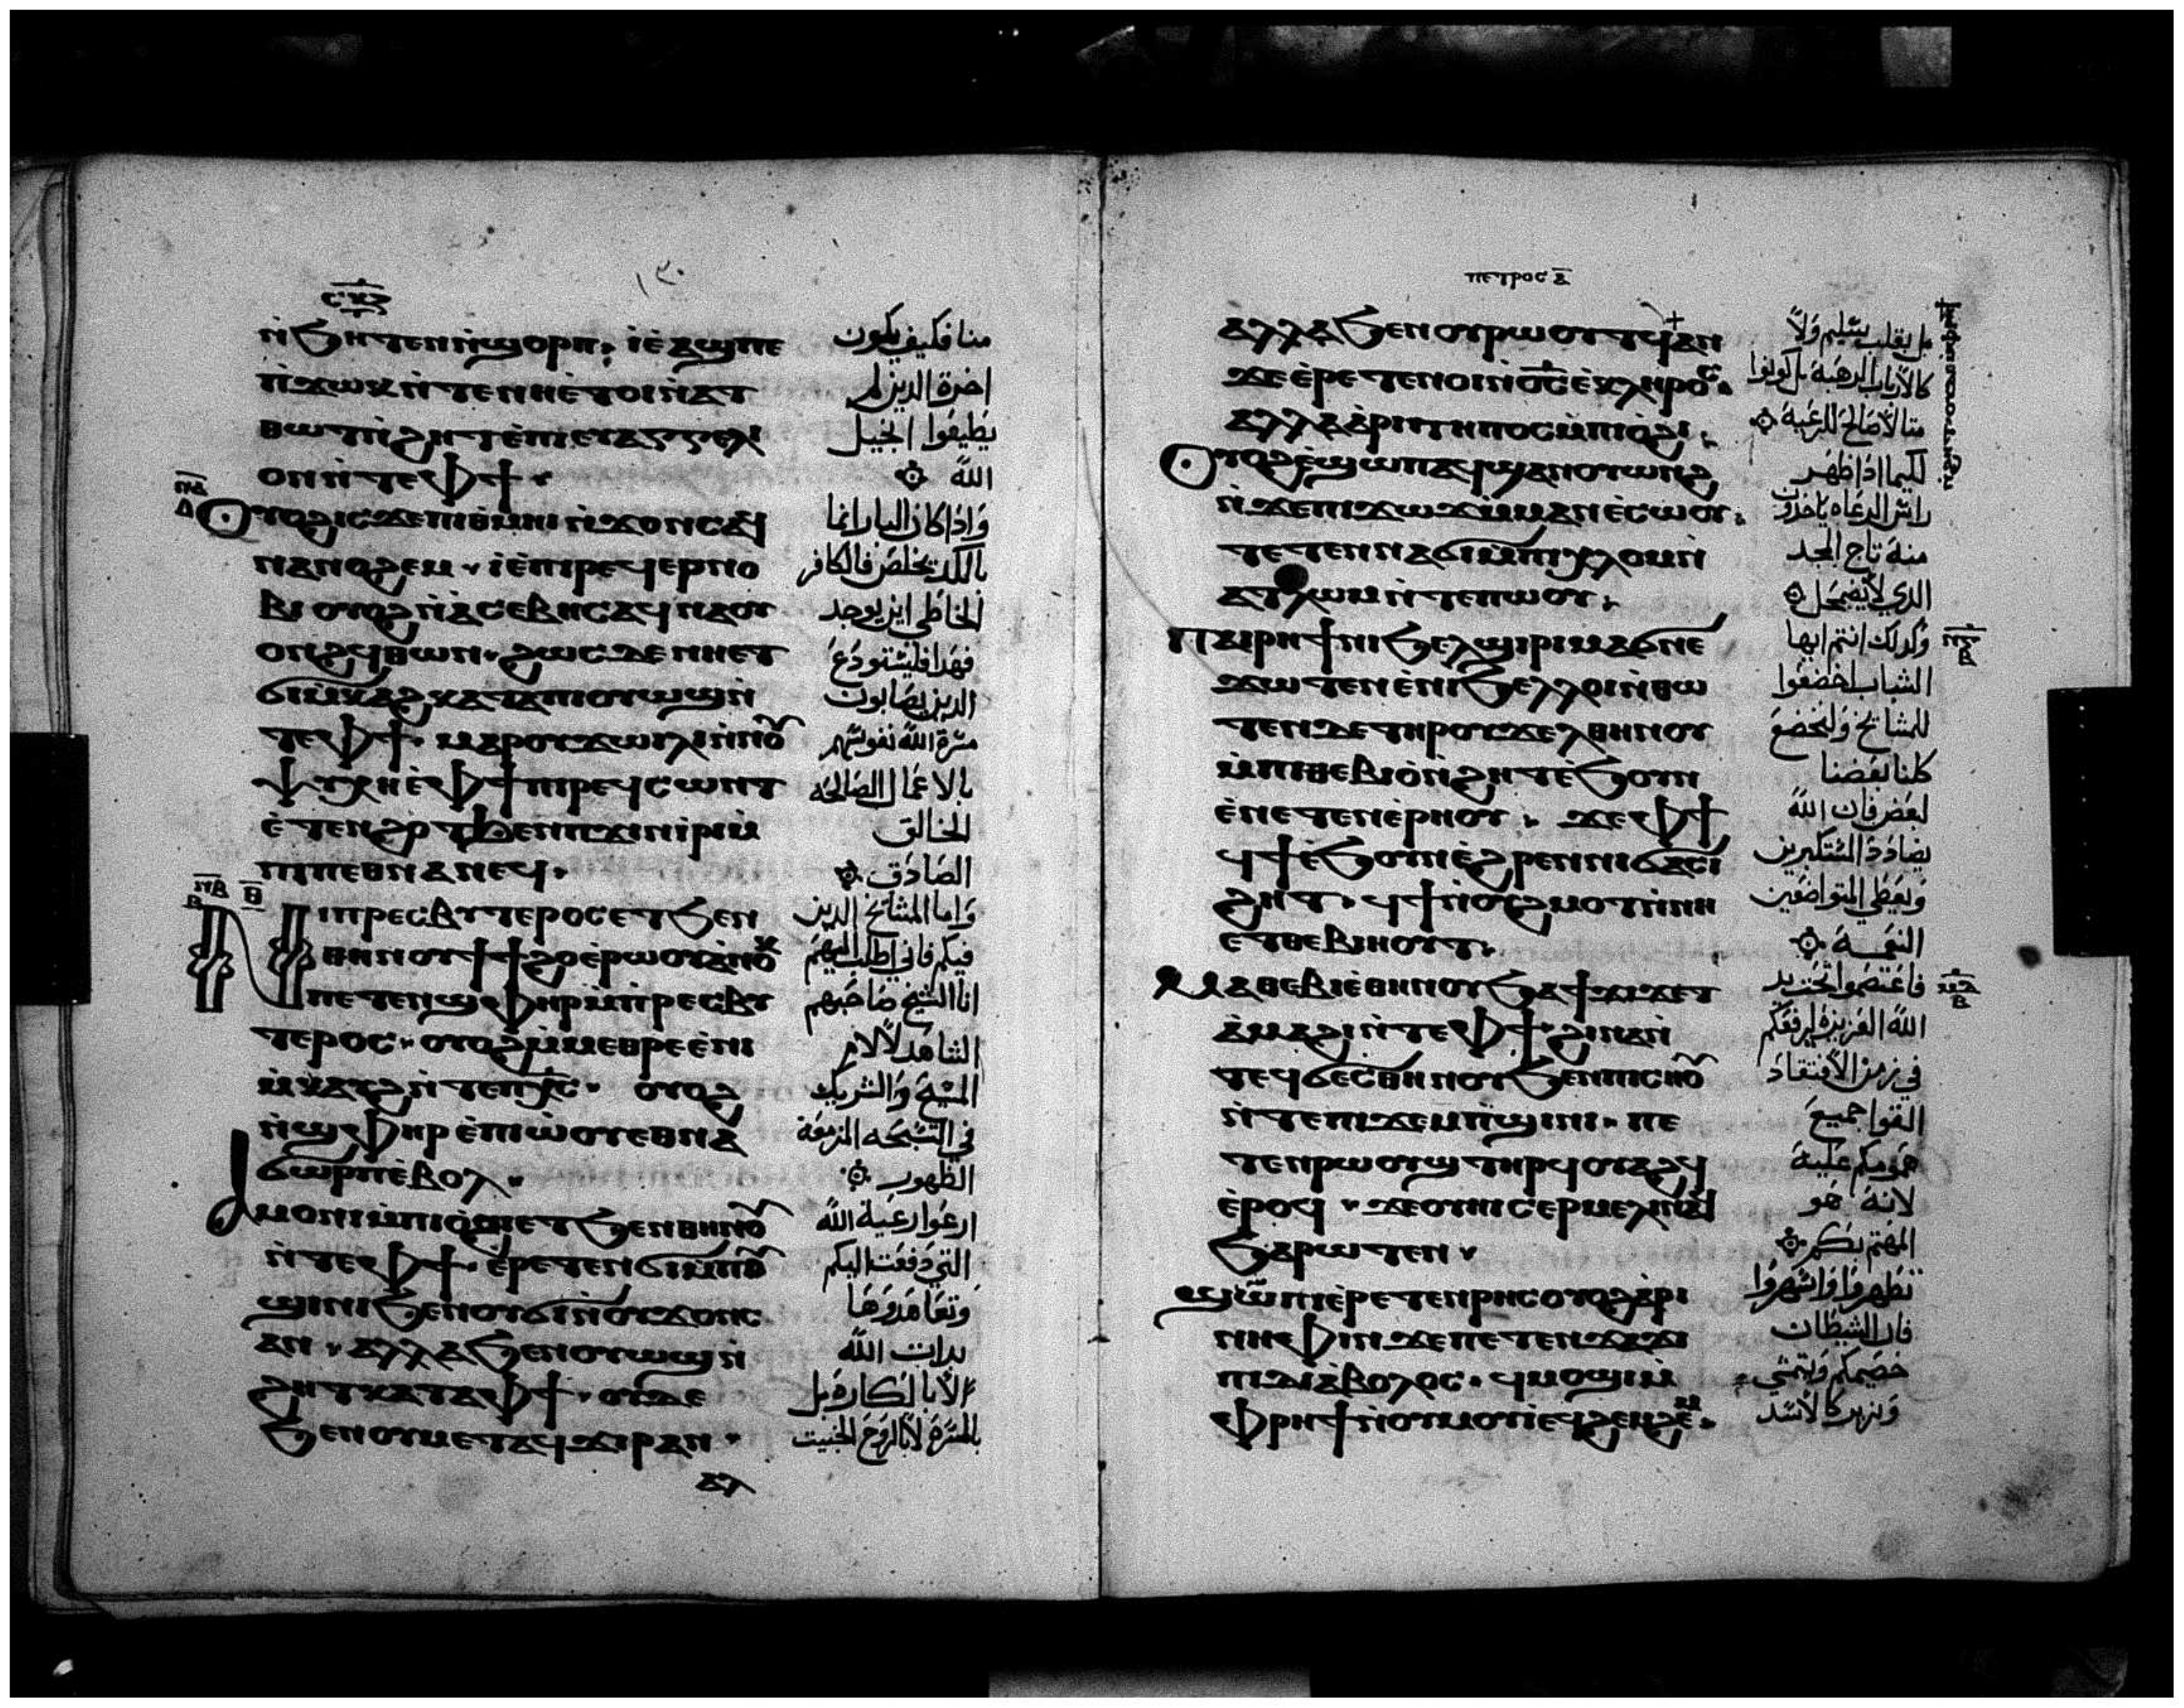 ⲥⲕⲍ
ⲛ̀ϧⲏⲧⲉⲛⲛ̀ϣⲟⲣⲡ ⲓⲉ̀ⲁϣⲡⲉ
ⲡ̀ϫⲱⲕⲛ̀ⲧⲉⲛⲏⲉ̀ⲧⲟⲓⲛ̀ⲁⲧ
ⲑⲱⲧⲛ̀ϩⲏⲧⲉ̀ⲡⲓⲉⲩⲁⲅⲅⲉⲗⲓ
ⲟⲛⲛ̀ⲧⲉⲫϯ
ⲟⲩⲟϩⲓⲥϫⲉⲡⲓⲑⲙⲏⲓ ⲛ̀ϫⲟⲛⲥⲁϥ
ⲛⲁⲛⲟϩⲉⲙ ⲓⲉ̀ⲡⲓⲣⲉϥⲉⲣⲛⲟ
ⲃⲓ ⲟⲩⲟϩⲛ̀ⲁⲥⲉⲃⲏⲥⲁϥⲛⲁⲟⲩ
ⲟⲛϩϥⲑⲱⲛ ϩⲱⲥⲇⲉ ⲛⲏⲉⲧ
ϭⲓⲙ̀ⲕⲁϩⲕⲁⲧⲁⲡⲓⲟⲩⲱϣⲛ̀
ⲧⲉⲫϯ ⲙⲁⲣⲟⲩϫⲱⲓⲗⲓⲛ̀ⲛⲟ
ⲯⲩⲭⲏⲉ̀ⲫϯⲡⲓⲣⲉϥⲥⲱⲛⲧ
ⲉ̀ⲧⲉⲛϩⲟⲧϧⲉⲛⲡϫⲓⲛⲓ̀ⲣⲓⲙ̀
ⲡⲓⲡⲉⲑⲛⲁⲛⲉϥ
ⲛⲓⲡⲣⲉⲥⲃⲩⲧⲉⲣⲟⲥⲉⲧϧⲉⲛ
ⲑⲏⲛⲟⲩϯϯϩⲟⲉ̀ⲣⲱⲟⲩⲁ̀ⲛⲟⲕ
ⲡⲉⲧⲉⲛϣⲫⲏⲣⲙ̀ⲡⲣⲉⲥⲃⲩ
ⲧⲉⲣⲟⲥ ⲟⲩⲟϩⲙ̀ⲙⲉⲑⲣⲉⲉ̀ⲛⲓ
ⲙ̀ⲕⲁⲩϩⲛ̀ⲧⲉⲡⲭⲥ ⲟⲩⲟϩ
ⲛ̀ϣⲫⲏⲣ ⲉ̀ⲡⲓⲱ̀ⲟⲩⲉⲑⲛⲁ
ϭⲱⲣⲡⲉ̀ⲃⲟⲗ
ⲁⲙⲟⲛⲓⲙ̀ⲡⲓⲟ̀ϩⲓⲉⲧϧⲉⲛⲑⲏⲛⲟ
ⲛ̀ⲧⲉⲫϯ ⲉ̀ⲣⲉⲧⲉⲛϭⲓⲙ̀ⲡⲟ
ϣⲓⲛⲓϧⲉⲛⲟⲩϭⲓⲛ̀ⲟⲩϫⲟⲛⲥ
ⲁⲛ ⲁⲗⲗⲁϧⲉⲛⲟⲩⲱϣⲛ̀
ϩⲏⲧⲕⲁⲧⲁⲫϯ ⲟⲩⲇⲉ
ϧⲉⲛⲟⲩⲙⲉⲧⲁϥϫⲓⲣⲁⲛ
ⲁⲗ
منا فكيف يكون
اخرة الذين لم
يطيعوا انجيل
الله
واذا كان البار انما
بالكد يخلص فالكافر
الخاطي اين يوجد
فهدا فليستودع
الدين يصابون
مسرة الله نفوسهم
بالاعمال الصالحه
للخالق
الصادق
واما المشايخ الدين
فيكم فاني اطلب اليهم
انا الشيخ صاحبهم
الشاهد لالام
المسيح والشريك
في التسبحه المزمعة
الظهور
ارعوا رعية الله
التي دفعت اليكم
وتعاهدوها
بدات الله
لا بالكاره بل
بالمسرة لا بالروح الخبيث
ⲡⲉⲧⲣⲟⲥ ⲁ
ⲁⲗⲗⲁϧⲉⲛⲟⲩⲣⲱⲟⲩⲧϥⲁⲛ
ϫⲉⲉ̀ⲣⲉⲧⲉⲛⲟⲓⲛ̀ⲟ̅ⲥ̅ⲉ̀ⲕⲗⲏⲣⲟⲥ
ⲁⲗⲗⲁⲁ̀ⲣⲓⲧⲏⲡⲟⲥⲙ̀ⲡⲓⲟ̀ϩⲓ
ⲟⲩⲟϩⲉ̀ϣⲱⲡⲁϥϣⲁⲛⲟⲩⲱⲛϩ
ⲛ̀ϫⲉⲡⲓϫⲱϫⲙ̀ⲙⲁⲛⲉ̀ⲥⲱⲟⲩ
ⲧⲉⲧⲉⲛⲛⲁϭⲓⲙ̀ⲡⲓⲭⲗⲟⲙⲛ̀
ⲁⲧⲗⲱⲙⲛ̀ⲧⲉⲡⲱⲟⲩ
ⲡⲁⲓⲣⲏϯⲛⲓϧⲉⲗϣⲓⲣⲓⲙⲁϭⲛⲉ
ϫⲱⲧⲉⲛⲉ̀ⲛⲓϧⲉⲗⲗⲟⲓⲛ̀ⲑⲱ
ⲧⲉⲛⲇⲉⲧⲏⲣⲟⲩϫⲉⲗⲑⲏⲛⲟⲩ
ⲙ̀ⲡⲓⲑⲉⲃⲓⲟ̀ⲛ̀ϩⲏⲧⲉ̀ϧⲟⲩⲛ
ⲉ̀ⲛⲉⲧⲉⲛⲉ̀ⲣⲏⲟⲩ ϫⲉⲫϯ
ϥϯⲉ̀ϧⲟⲩⲛⲉ̀ϩⲣⲉⲛⲛⲓϭⲁⲥⲓ
ϩⲏⲧ ϥϯⲛ̀ⲟⲩϩⲙⲟⲧⲛ̀ⲛⲏ
ⲉⲧⲑⲉⲃⲓⲏⲟⲩⲧ
ⲙⲁⲑⲉⲃⲓⲉ̀ⲑⲏⲛⲟⲩϧⲁϯϫⲓϫⲉⲧ
ⲁ̀ⲙⲁϩⲓⲛ̀ⲧⲉⲫϯ ϩⲓⲛⲁⲛ̀
ⲧⲉϥϭⲉⲥⲑⲏⲛⲟⲩϧⲉⲛⲡⲓⲥⲛⲟ
ⲛ̀ⲧⲉⲡⲓϫⲉⲙⲡ̀ϣⲓⲛⲓ ⲡⲉ
ⲧⲉⲛⲣⲱⲟⲩϣⲧⲏⲣϥⲟⲩⲁϩϥ
ⲉ̀ⲣⲟϥ ϫⲉⲟⲩⲏⲓⲥⲉⲣⲙⲉⲗⲓⲛⲁϥ
ϧⲁⲣⲱⲧⲉⲛ
ϣⲱⲡⲓⲉ̀ⲣⲉⲧⲉⲛⲣⲏⲥⲟⲩⲟϩⲁ̀ⲣⲓ
ⲛⲏⲫⲓⲛ ϫⲉⲡⲉⲧⲉⲛϫⲁϫⲓ
ⲡⲓⲇⲓⲁ̀ⲃⲟⲗⲟⲥ ϥⲙⲟϣⲓⲙ̀
ⲫⲣⲏϯⲛ̀ⲟⲩⲙⲟⲩⲓⲉϥϩⲉⲙϩⲉⲙ
بل بقلب سليم ولا
كالارباب الرهبة بل كونوا
مثالا صالحا للرعية
لكيما اذا ظهر
رائس الرعاه ياخذون
منه تاج المجد
الدي لا يضمحل
وكدلك انتم ايها
الشباب اخضعوا
للمشايخ وليخضع
كلنا بعضنا
لبعض فان الله
يضادد المستكبرين
ويعطي المتواضعين
النعمة
فاعتصموا تحت يد
الله العزيزة ليرفعكم
في زمن الافتقاد
القوا جميع
همومكم عليه
لانه هو
المهتم بكم
تطهروا واسهروا
فان الشيطان
خصيمكم ويمشي
ويزير كالاسد